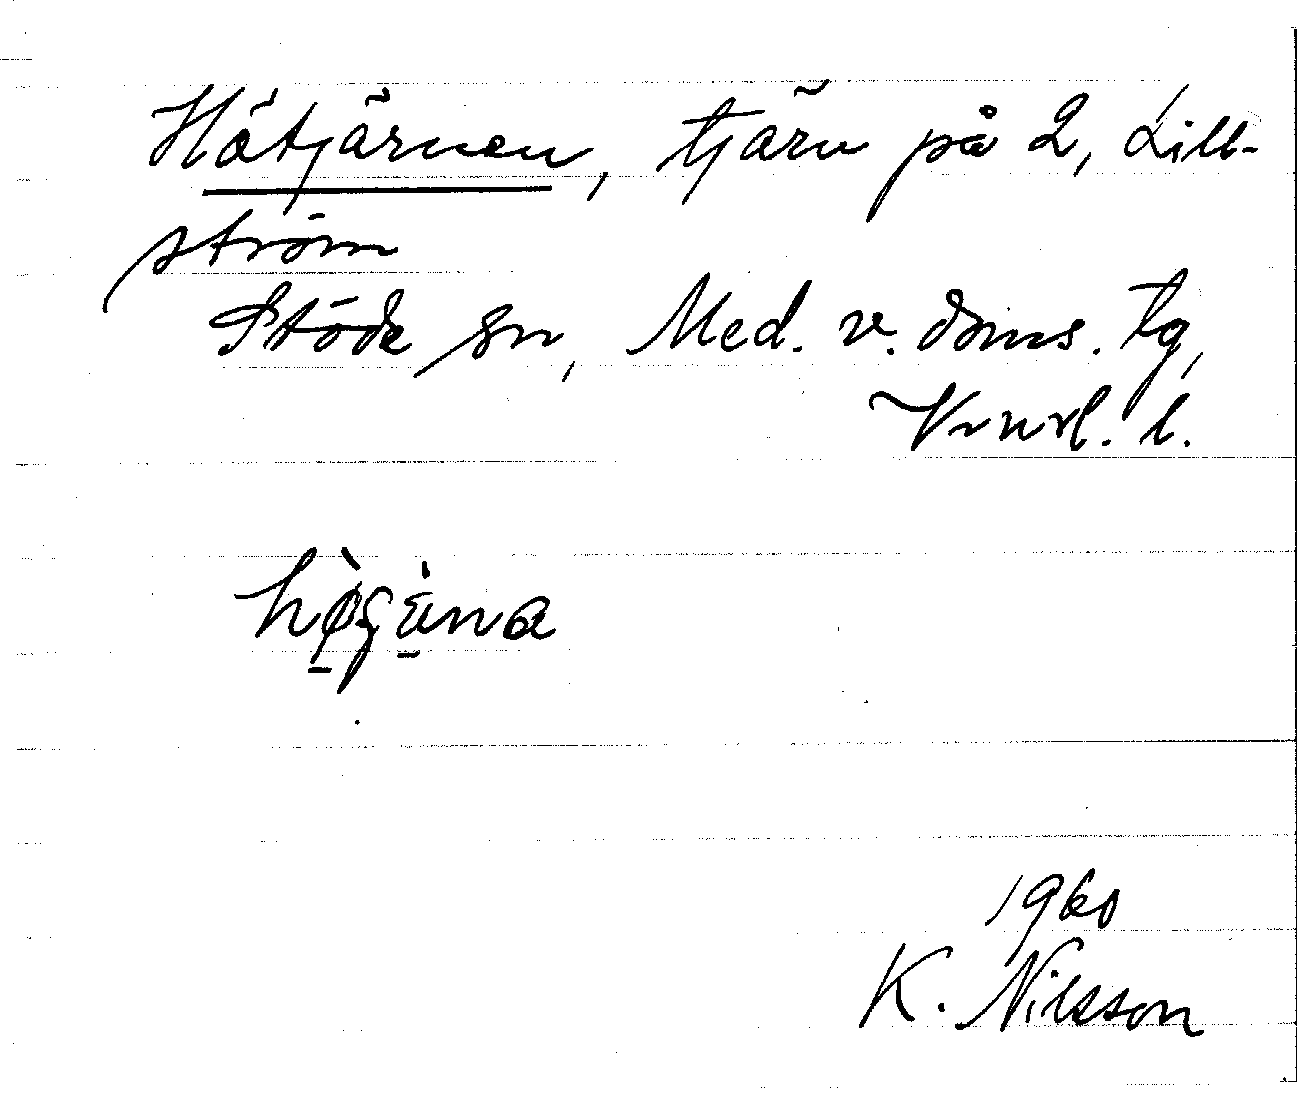 Hötjärnen, tjärn på 2, Lill-
ström
Stöde sn, Med. v. doms. tg,
Vnrl. l.
1960
K. Nilsson